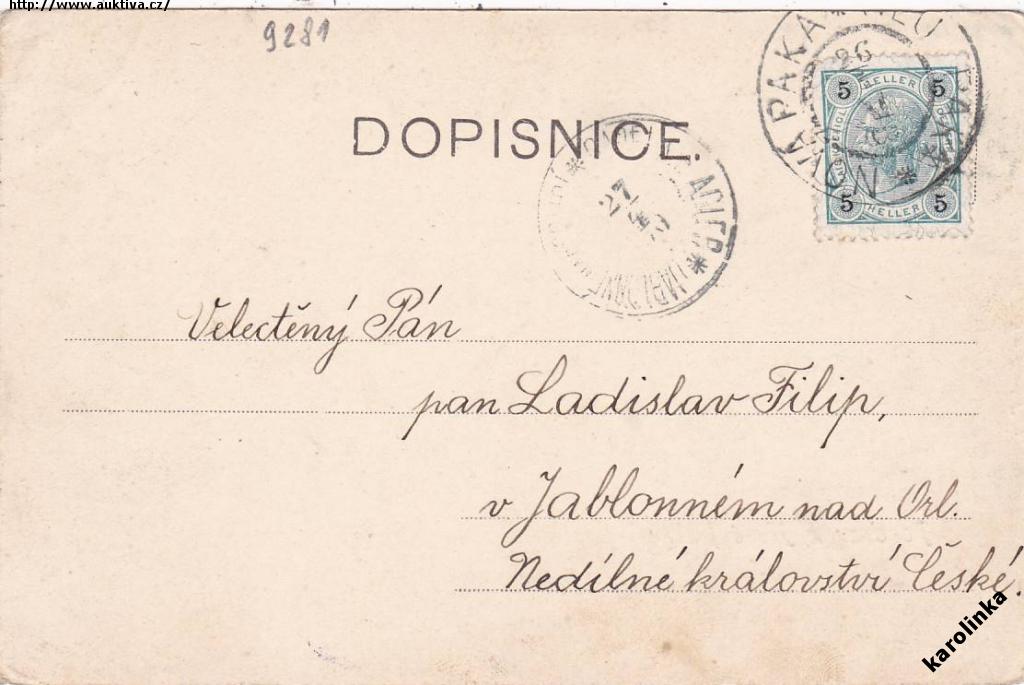 http://www.auktiva.cz/
9281
DOPISNICE.
NOVÁ PAKA * NEU PAKA *
26
5 HELLER 5
5 HELLER 5
ADLER *
27
Velectěný Pán
pan Ladislav Filip,
v Jablonném nad Orl.
Nedílné království České.
karolinka